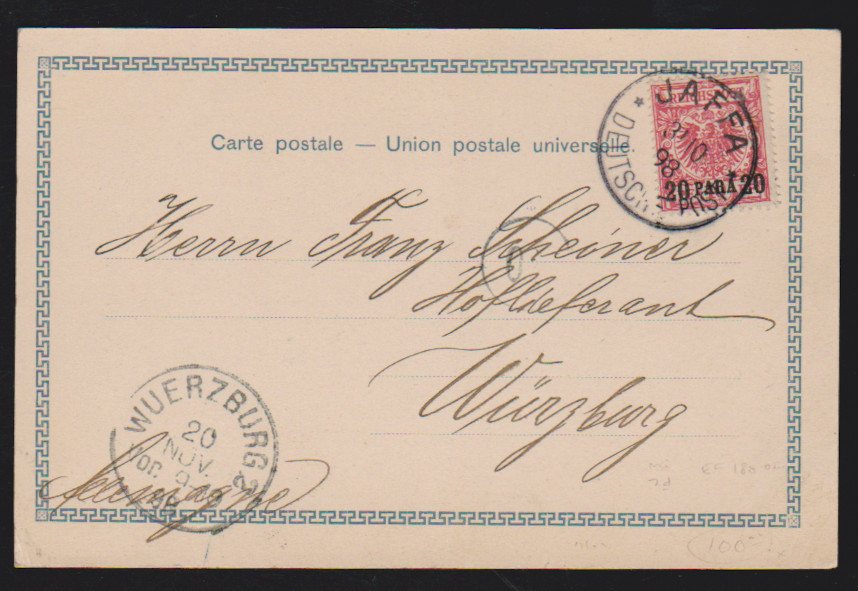 Carte postale — Union postale universelle.
REICHSPOST
20 PARA 20
* JAFFA *
DEUTSCHE POST
10
98
Herrn Franz Scheiner
6
Hoflieferant
Würzburg
WUERZBURG 2
20
NOV.
VOR.
Allemagne
(100